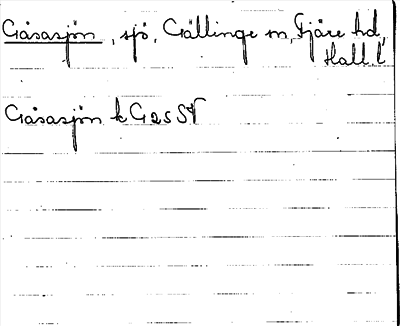 Gåsasjön, sjö, Gällinge sn, Fjäre hd,
Hall. l.
Gåsasjön k G2sSV